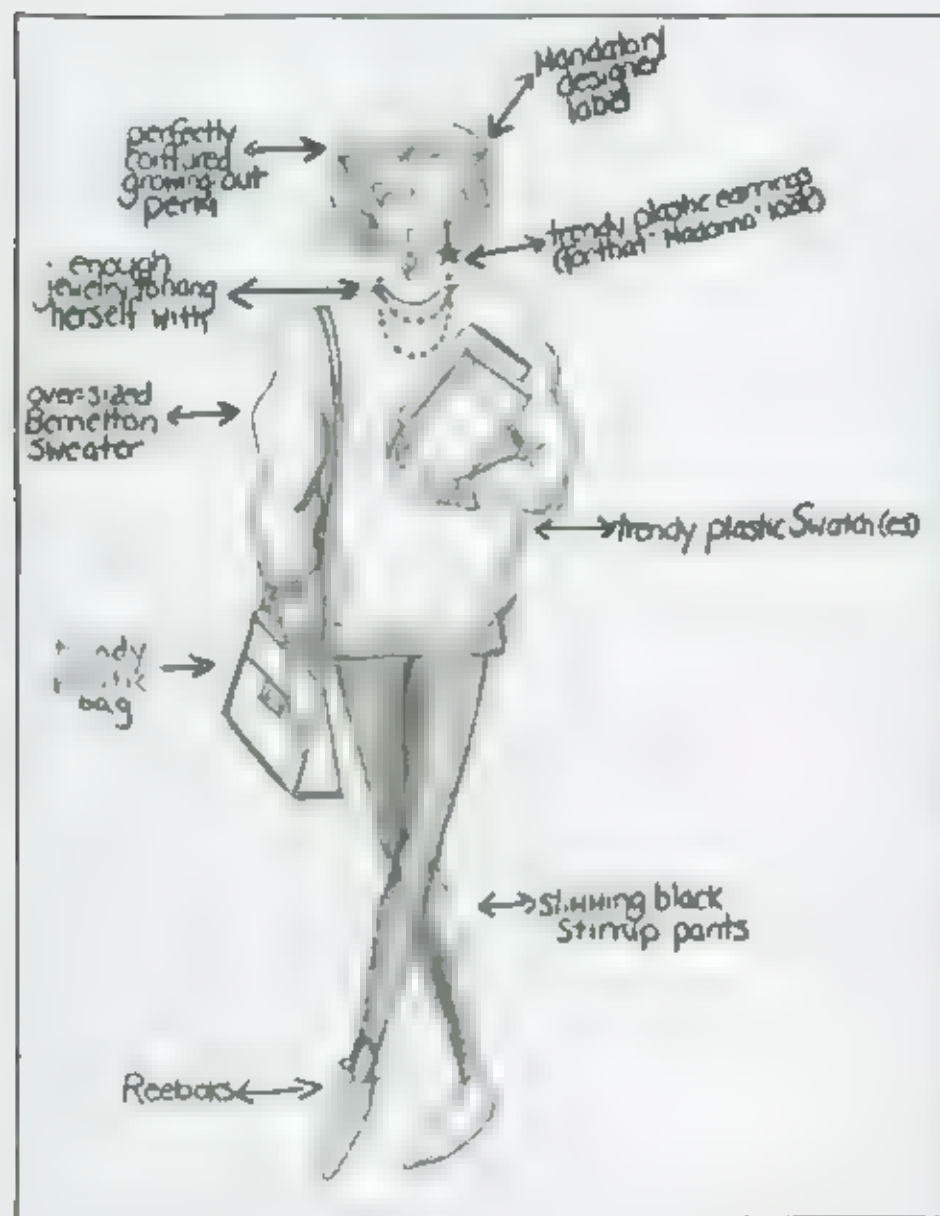 Mandatory
designer
label
perfectly
coiffured
growing-out
perm
trendy plastic earrings
(for that "Madonna" look)
enough
jewelry to hang
herself with
over-sized
Bennetton
Sweater
trendy plastic Swatch(es)
bag
slimming black
Stirrup pants
Reeboks